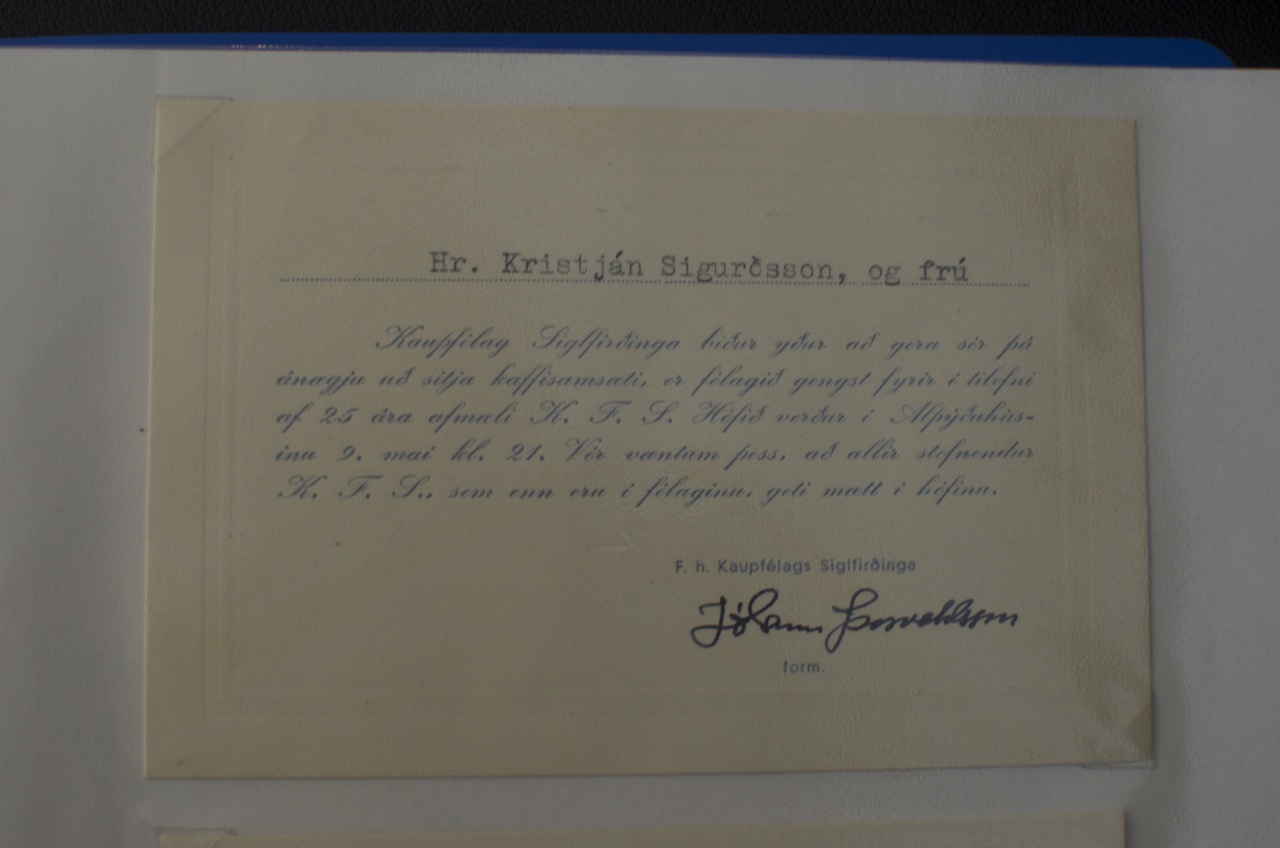 Hr. Kristján Sigurðsson, og frú
Kaupfélag Siglfirðinga biður yður að gera sér þá
ánægju að sitja kaffisamsæti, er félagið gengst fyrir í tilefni
af 25 ára afmæli K. F. S. Hófið verður í Alþýðuhús-
inu 9. maí kl. 21. Vér væntum þess, að allir stofnendur
K. F. S., sem enn eru í félaginu, geti mætt í hófinu.
F. h. Kaupfélags Siglfirðinga
Jóhann Þorvaldsson
form.